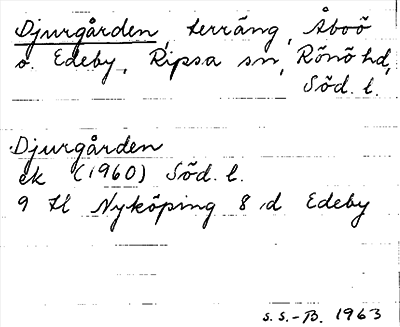 Djurgården, terräng, Åboö
o. Edeby, Ripsa sn, Rönö hd,
Söd. l.
Djurgården
ek (1960) Söd. l.
9 H Nyköping 8 d Edeby
S.S.-B. 1963